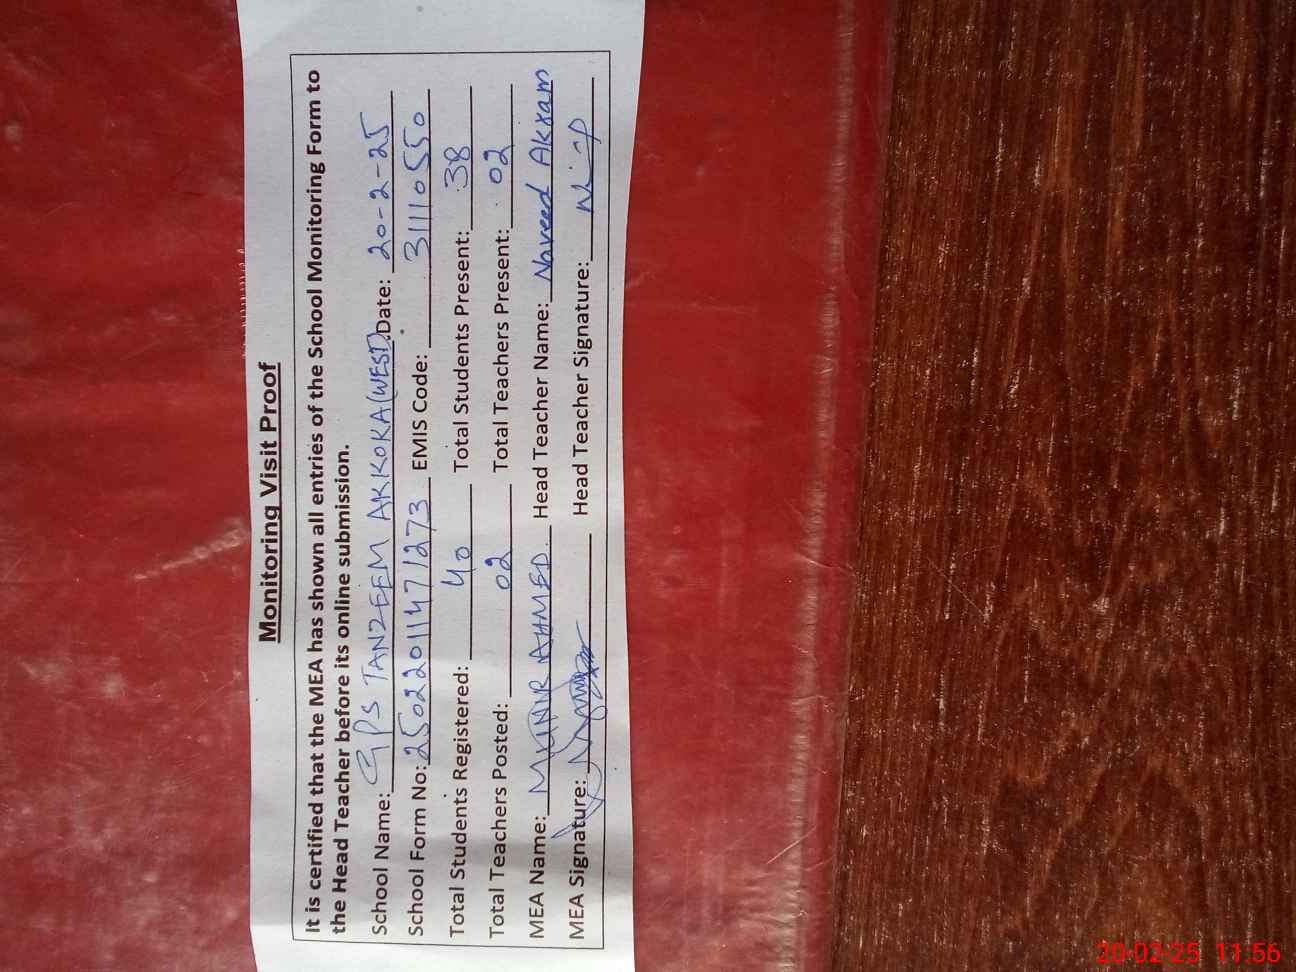 Monitoring Visit Proof
It is certified that the MEA has shown all entries of the School Monitoring Form to
the Head Teacher before its online submission.
School Name: GPS TANZEEM AKKOKA (WEST) Date: 20-2-25
School Form No: 25022011471273 EMIS Code: 31110550
Total Students Registered: 40 Total Students Present: 38
Total Teachers Posted: 02 Total Teachers Present: 02
MEA Name: MUNIR AHMED Head Teacher Name: Naveed Akram
MEA Signature: Head Teacher Signature:
20-02-25 11:56